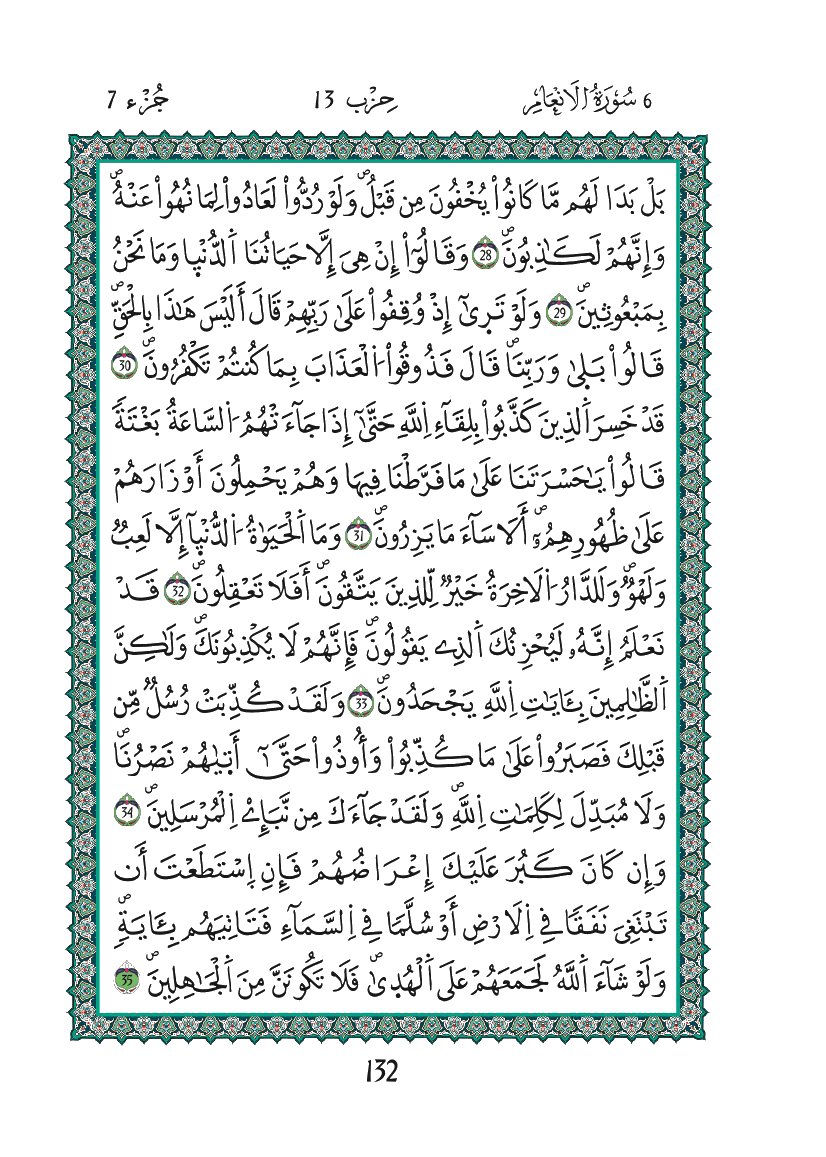 6 سُورَةُ الَانْعَامِ حِزْب 13 جُزْء 7
بَلْ بَدَا لَهُم مَّا كَانُواْ يُخْفُونَ مِن قَبْلُۖ وَلَوْ رُدُّواْ لَعَادُواْ لِمَا نُهُواْ عَنْهُۖ
وَإِنَّهُمْ لَكَٰذِبُونَۖ 28 وَقَالُوٓاْ إِنْ هِيَ إِلَّا حَيَاتُنَا اَ۬لدُّنْي۪ا وَمَا نَحْنُ
بِمَبْعُوثِينَۖ 29 وَلَوْ تَر۪ىٰٓ إِذْ وُقِفُواْ عَلَىٰ رَبِّهِمْ قَالَ أَلَيْسَ هَٰذَا بِالْحَقِّۖ
قَالُواْ بَل۪ىٰ وَرَبِّنَاۖ قَالَ فَذُوقُواْ اُ۬لْعَذَابَ بِمَا كُنتُمْ تَكْفُرُونَۖ 30
قَدْ خَسِرَ اَ۬لذِينَ كَذَّبُواْ بِلِقَآءِ اِ۬للَّهِ حَتَّىٰٓ إِذَا جَآءَتْهُمُ اُ۬لسَّاعَةُ بَغْتَةً
قَالُواْ يَٰحَسْرَتَنَا عَلَىٰ مَا فَرَّطْنَا فِيهَا وَهُمْ يَحْمِلُونَ أَوْزَارَهُمْ
عَلَىٰ ظُهُورِهِمُۥٓۖ أَلَا سَآءَ مَا يَزِرُونَۖ 31 وَمَا اَ۬لْحَيَوٰةُ اُ۬لدُّنْي۪آ إِلَّا لَعِبٞ
وَلَهْوٞۖ وَلَلدَّارُ اُ۬لَاخِرَةُ خَيْرٞ لِّلذِينَ يَتَّقُونَۖ أَفَلَا تَعْقِلُونَۖ 32 قَدْ
نَعْلَمُ إِنَّهُۥ لَيُحْزِنُكَ اَ۬لذِے يَقُولُونَۖ فَإِنَّهُمْ لَا يُكْذِبُونَكَۖ وَلَٰكِنَّ
اَ۬لظَّٰلِمِينَ بِـَٔايَٰتِ اِ۬للَّهِ يَجْحَدُونَۖ 33 وَلَقَدْ كُذِّبَتْ رُسُلٞ مِّن
قَبْلِكَ فَصَبَرُواْ عَلَىٰ مَا كُذِّبُواْ وَأُوذُواْ حَتَّىٰٓ أَت۪يٰهُمْ نَصْرُنَاۖ
وَلَا مُبَدِّلَ لِكَلِمَٰتِ اِ۬للَّهِۖ وَلَقَدْ جَآءَكَ مِن نَّبَإِےْ اِ۬لْمُرْسَلِينَۖ 34
وَإِن كَانَ كَبُرَ عَلَيْكَ إِعْرَاضُهُمْ فَإِنِ اِ۪سْتَطَعْتَ أَن
تَبْتَغِيَ نَفَقاٗ فِے اِ۬لَارْضِ أَوْ سُلَّماٗ فِے اِ۬لسَّمَآءِ فَتَاتِيَهُم بِـَٔايَةٖۖ
وَلَوْ شَآءَ اَ۬للَّهُ لَجَمَعَهُمْ عَلَى اَ۬لْهُد۪ىٰۖ فَلَا تَكُونَنَّ مِنَ اَ۬لْجَٰهِلِينَۖ 35
132